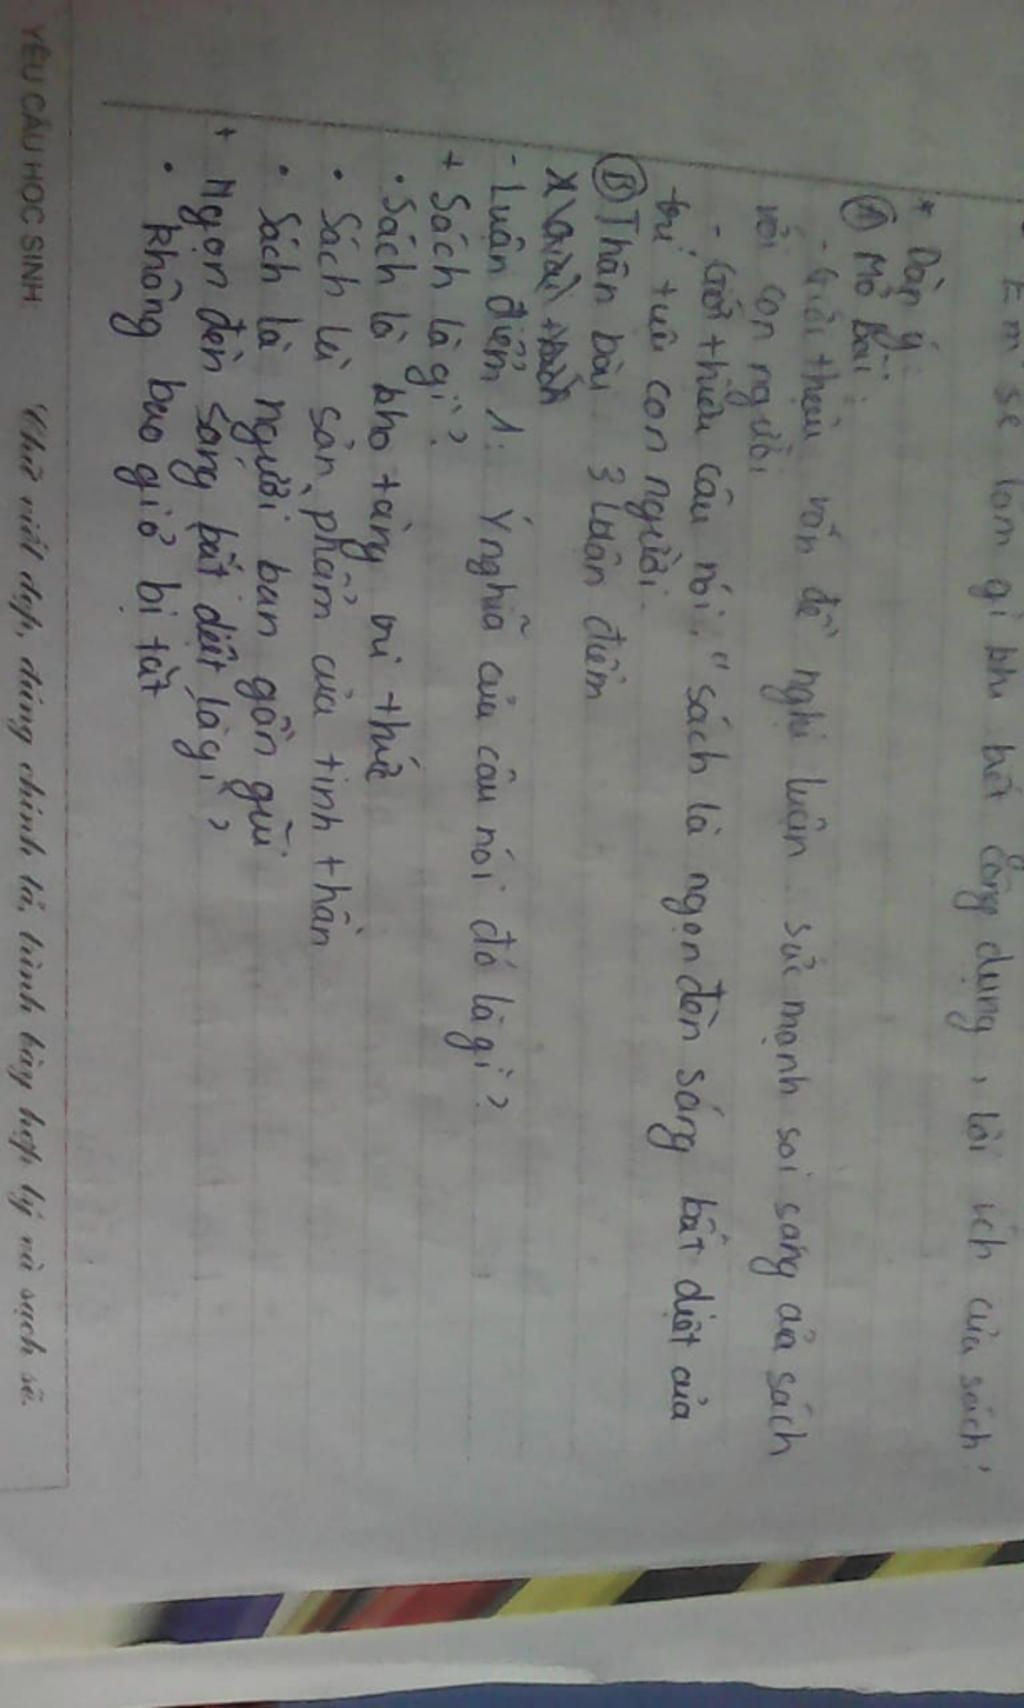 Em sẽ làm gì khi hết công dụng, lợi ích của sách?
* Dàn ý:
Ⓐ Mở Bài:
- Giới thiệu vấn đề nghị luận sức mạnh soi sáng của sách
với con người
- Giới thiệu câu nói: "sách là ngọn đèn sáng bất diệt của
trí tuệ con người.
Ⓑ Thân bài 3 luận điểm
- Luận điểm 1: Ý nghĩa của câu nói đó là gì?
+ Sách là gì?
. Sách là kho tàng tri thức
. Sách là sản phẩm của tinh thần
. Sách là người bạn gần gũi
+ Ngọn đèn sáng bất diệt là gì?
. không bao giờ bị tắt
YÊU CẦU HỌC SINH: Chữ viết đẹp, đúng chính tả, trình bày hợp lý và sạch sẽ.